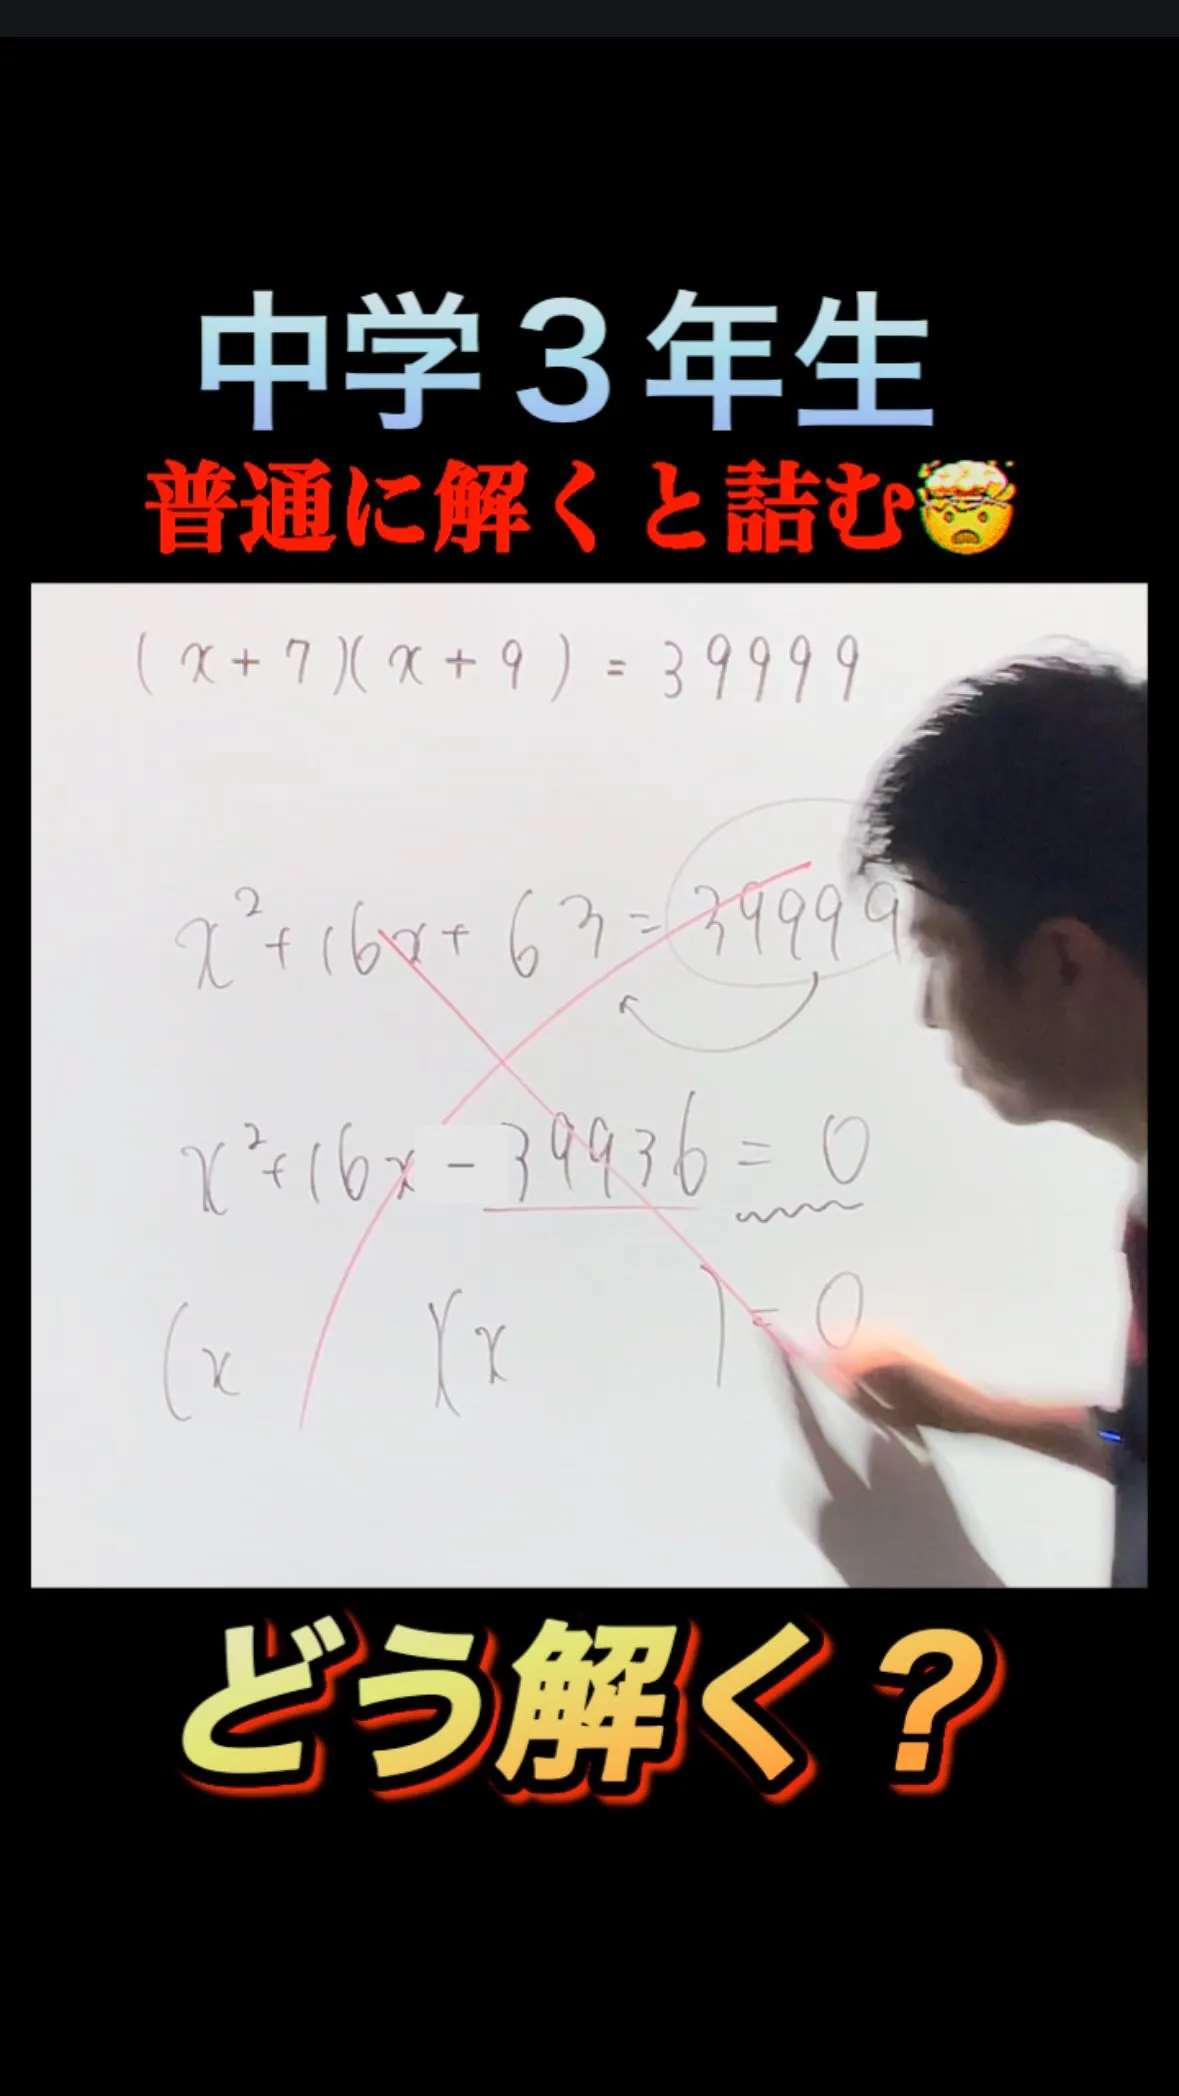 中学３年生
普通に解くと詰む🤯
(x+7)(x+9)=39999
x²+16x+63=39999
x²+16x-39936=0
(x )(x )=0
どう解く？